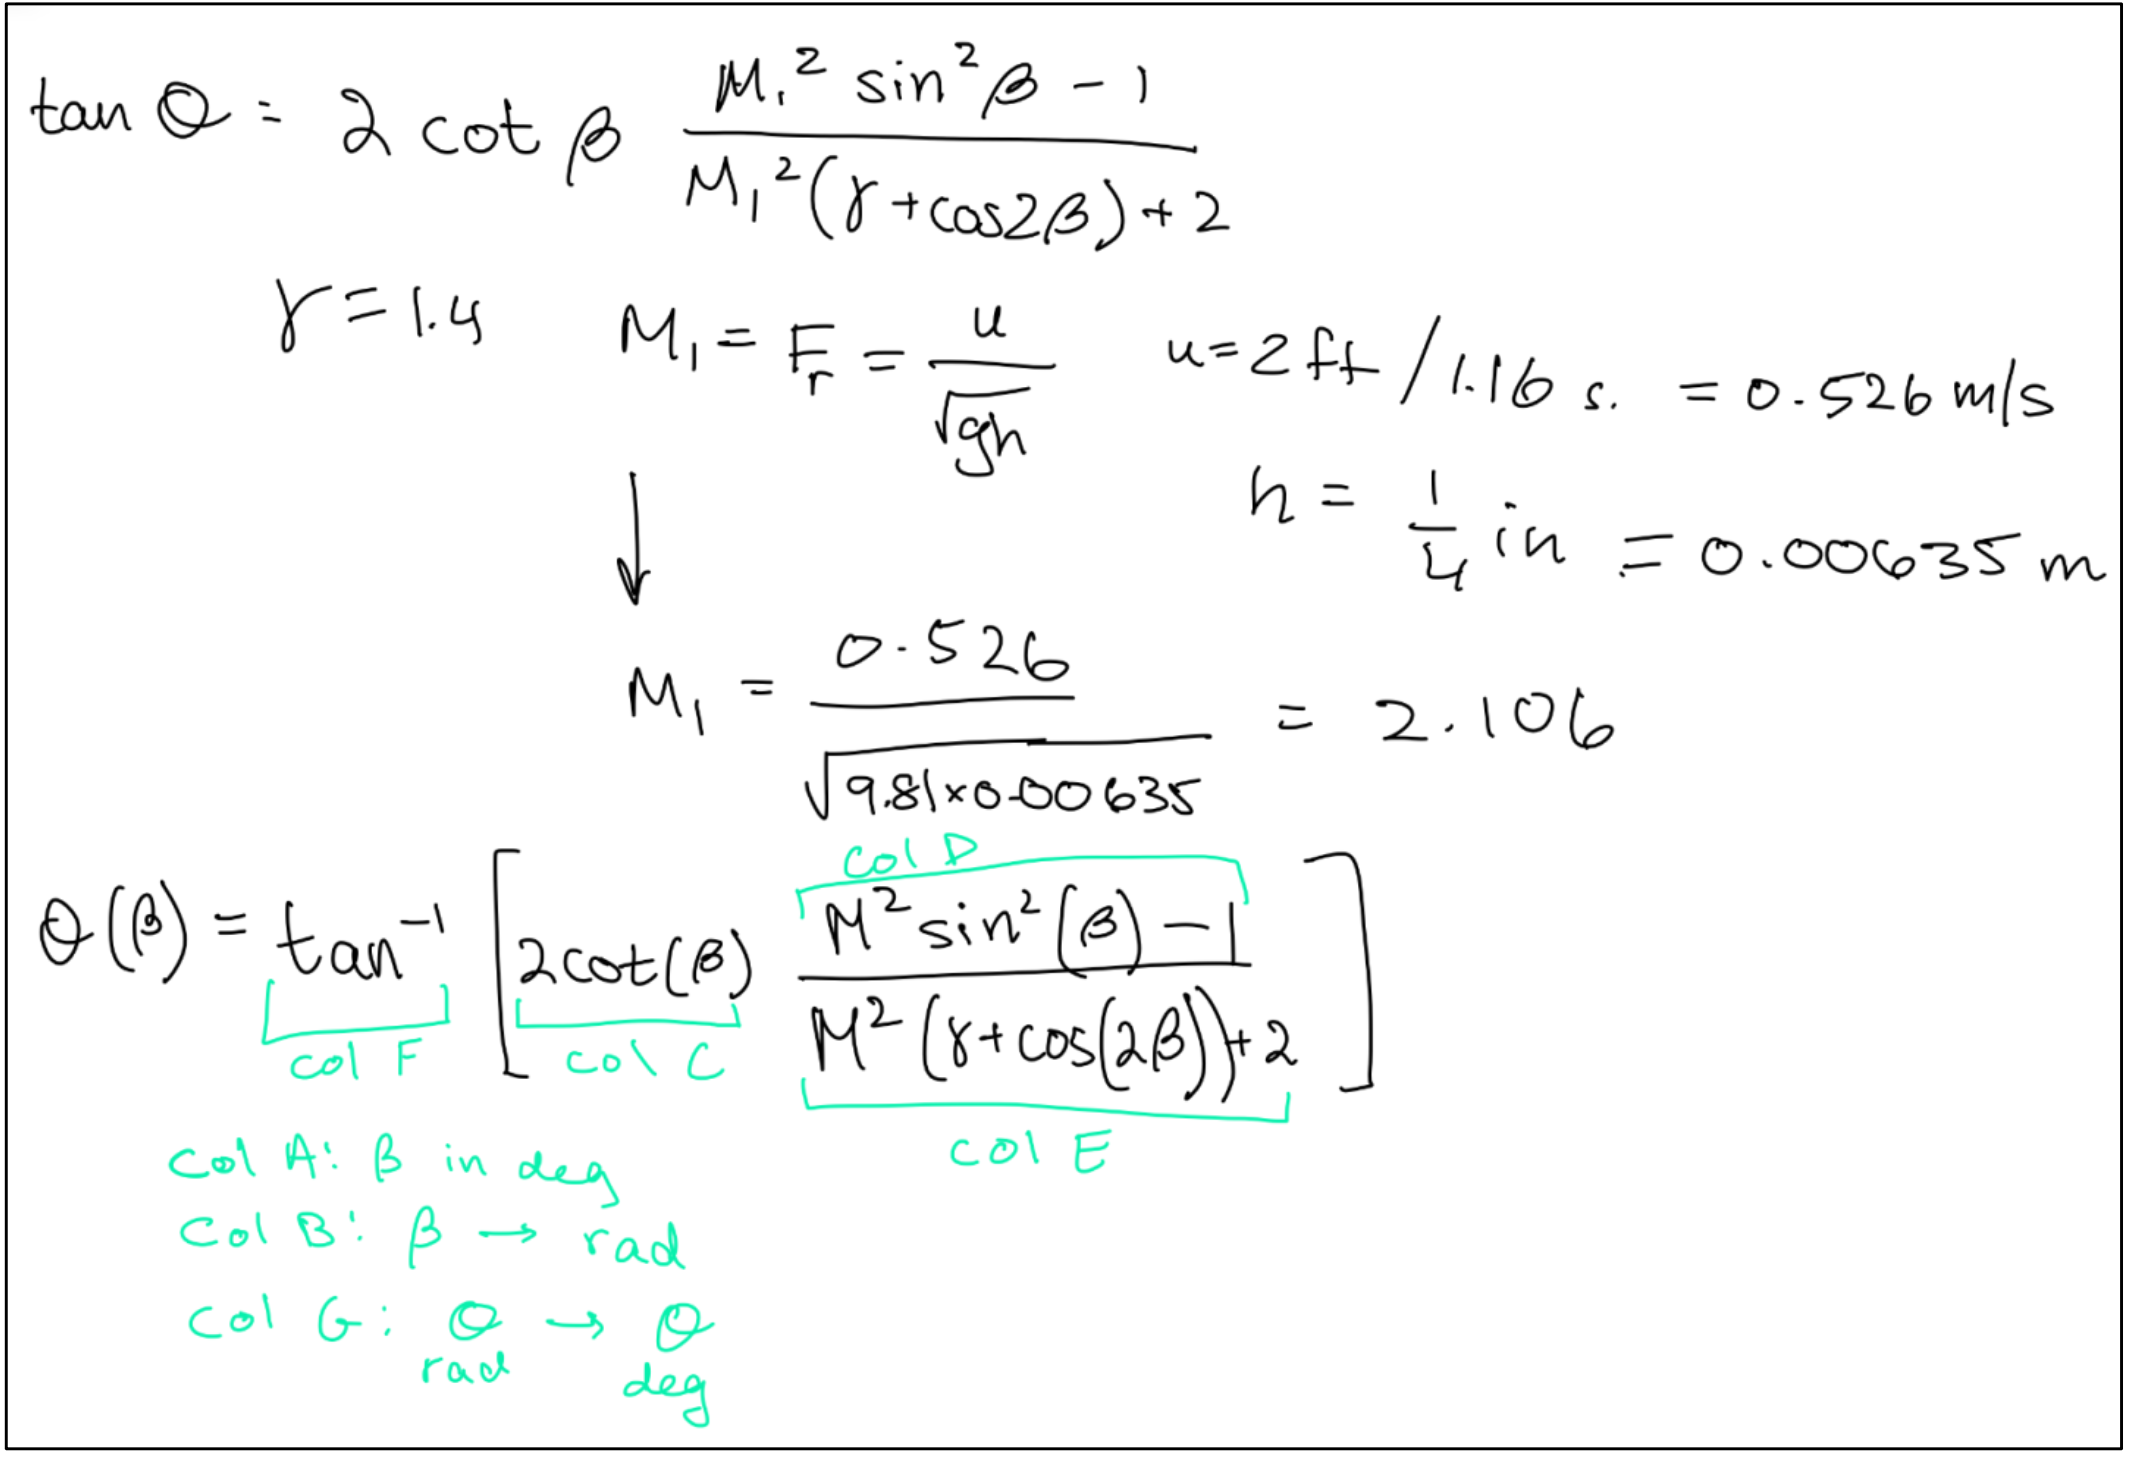 tan θ = 2 cot β (M₁² sin² β - 1) / (M₁² (γ + cos2β) + 2)
γ = 1.4 M₁ = Fr = u / √gh u = 2 ft / 1.16 s. = 0.526 m/s
h = 1/4 in = 0.00635 m
↓
M₁ = 0.526 / √9.81×0.00635 = 2.106
col D
θ(β) = tan⁻¹ [2cot(β) (M² sin²(β) - 1) / (M² (γ + cos(2β)) + 2)]
col F col C
col E
Col A: β in deg
Col B: β → rad
Col G: θ rad → θ deg